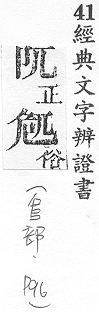 41 經典文字辨證書
阢正
俗
部 P96)